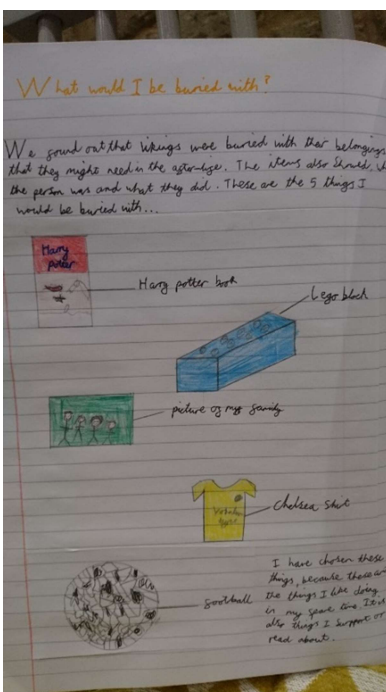 What would I be buried with?
We found out that vikings were buried with their belongings
that they might need in the afterlife. The items also should
the person was and what they did. These are the 5 things I
would be buried with...
Harry
potter
Harry potter book
Lego block
picture of my family
Chelsea shirt
football
I have chosen these
things, because these are
the things I like doing
in my spare time. It is
also things I support or
read about.